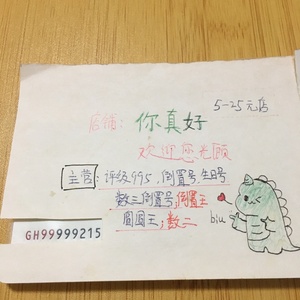 5-25元店
店铺：你真好
欢迎您光顾
主营：评级995，倒置号，生日号
数三倒置号，倒置王
圆圆王，数二
biu
GH99999215